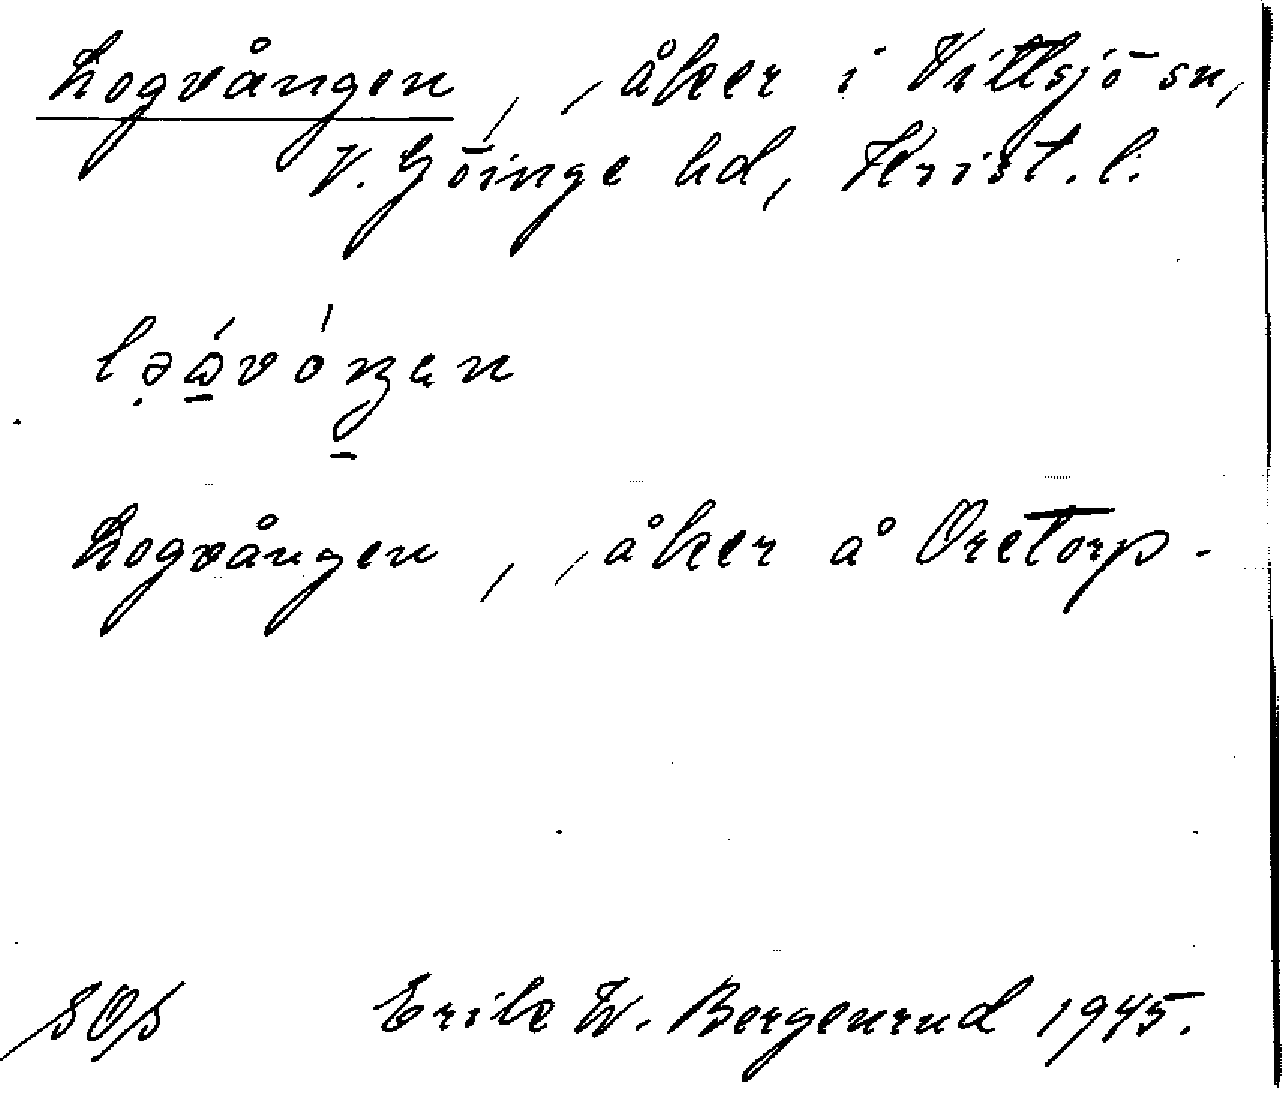 Logvången, , åker i Vittsjö sn,
V. Göinge hd, Krist. l.
Logvången, , åker å Oretorp.
SOS Erik W. Bergenrud 1945.